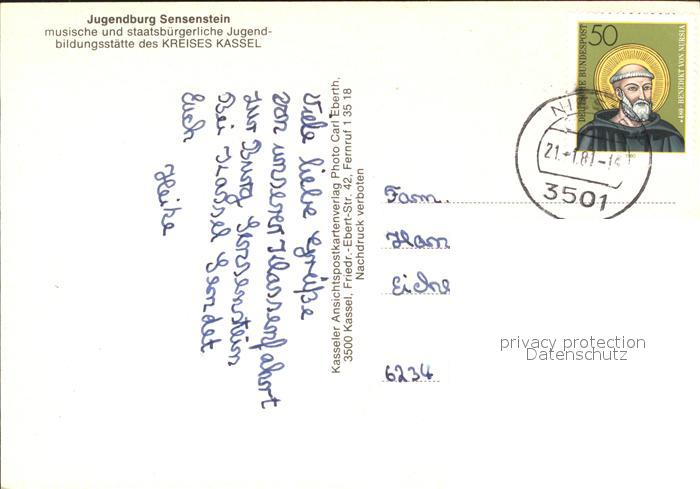 Jugendburg Sensenstein
musische und staatsbürgerliche Jugend-
bildungsstätte des KREISES KASSEL
50
DEUTSCHE BUNDESPOST
*480 BENEDIKT VON NURSIA
21.-1.81-14
3501
Viele liebe Grüße
von unserer Klassenfahrt
zur Burg Sensenstein
bei Kassel sendet
Euch
Heike
Kasseler Ansichtspostkartenverlag Photo Carl Eberth,
3500 Kassel, Friedr.-Ebert-Str. 42, Fernruf 1 35 18
Nachdruck verboten
Fam.
Ham
Eiche
6234
privacy protection
Datenschutz